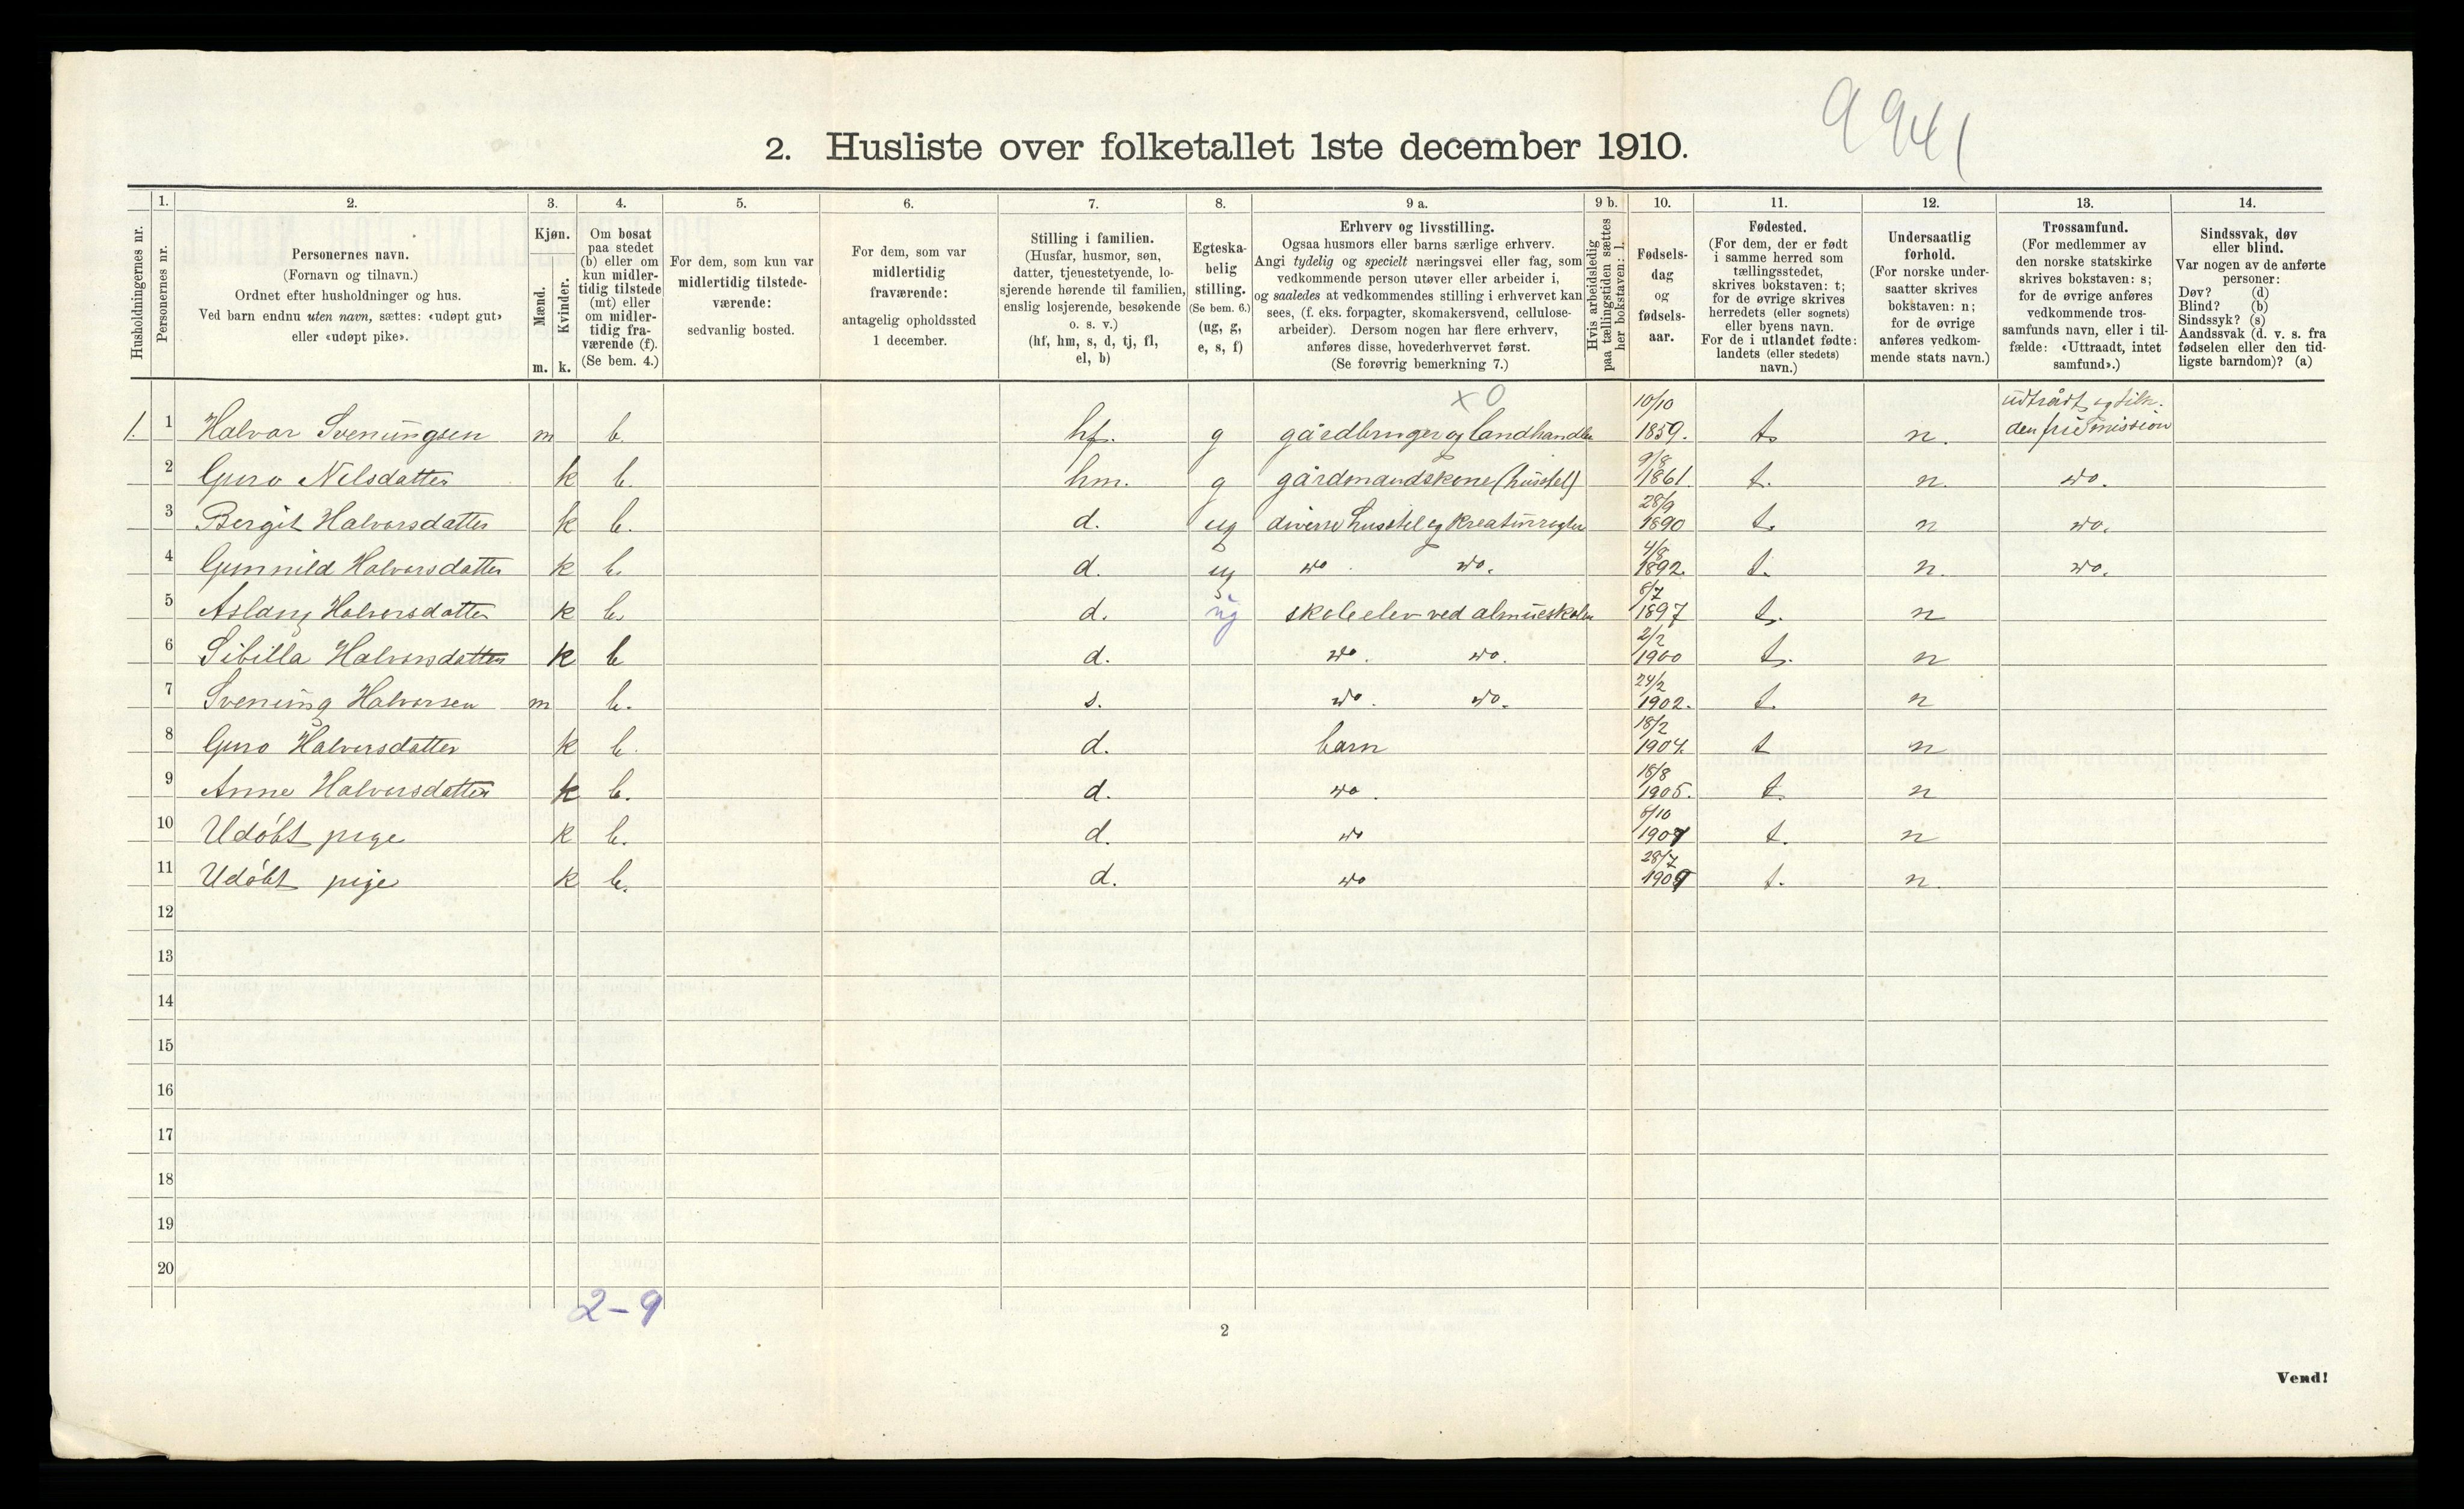 9941
2. Husliste over folketallet 1ste december 1910.
Husholdningernes nr.
1.
Personernes nr.
2.
Personernes navn.
(Fornavn og tilnavn.)
Ordnet efter husholdninger og hus.
Ved barn endnu uten navn, sættes: «udøpt gut»
eller «udøpt pike».
3.
Kjøn.
Mænd.
Kvinder.
m. k.
4.
Om bosat
paa stedet
(b) eller om
kun midler-
tidig tilstede
(mt) eller
om midler-
tidig fra-
værende (f).
(Se bem. 4.)
5.
For dem, som kun var
midlertidig tilstede-
værende:
sedvanlig bosted.
6.
For dem, som var
midlertidig
fraværende:
antagelig opholdssted
1 december.
7.
Stilling i familien.
(Husfar, husmor, søn,
datter, tjenestetyende, lo-
sjerende hørende til familien,
enslig losjerende, besøkende
o. s. v.)
(hf, hm, s, d, tj, fl,
el, b)
8.
Egteska-
belig
stilling.
(Se bem. 6.)
(ug, g,
e, s, f)
9 a.
Erhverv og livsstilling.
Ogsaa husmors eller barns særlige erhverv.
Angi tydelig og specielt næringsvei eller fag, som
vedkommende person utøver eller arbeider i,
og saaledes at vedkommendes stilling i erhvervet kan
sees, (f. eks. forpagter, skomakersvend, cellulose-
arbeider). Dersom nogen har flere erhverv,
anføres disse, hovederhvervet først.
(Se forøvrig bemerkning 7.)
9 b.
Hvis arbeidsledig
paa tællingstiden sættes
her bokstaven: l.
10.
Fødsels-
dag
og
fødsels-
aar.
11.
Fødested.
(For dem, der er født
i samme herred som
tællingsstedet,
skrives bokstaven: t;
for de øvrige skrives
herredets (eller sognets)
eller byens navn.
For de i utlandet fødte:
landets (eller stedets)
navn.)
12.
Undersaatlig
forhold.
(For norske under-
saatter skrives
bokstaven: n;
for de øvrige
anføres vedkom-
mende stats navn.)
13.
Trossamfund.
(For medlemmer av
den norske statskirke
skrives bokstaven: s;
for de øvrige anføres
vedkommende tros-
samfunds navn, eller i til-
fælde: «Uttraadt, intet
samfund».)
14.
Sindssvak, døv
eller blind.
Var nogen av de anførte
personer:
Døv? (d)
Blind? (b)
Sindssyk? (s)
Aandssvak (d. v. s. fra
fødselen eller den tid-
ligste barndom)? (a)
x 0
1. 1 Halvor Sveningsen m b. hf. g gårdbruger og landhandler 10/10 1859. t. n. udtrådt og tilh. den fri mission
2 Guro Nilsdatter k b. hm. g gårdmandskone (husstel) 9/8 1861. t. n. do.
3 Bergit Halvorsdatter k b. d. ug diverse husstel og kreaturrøgter 28/9 1890 t. n do.
4 Gunnild Halvorsdatter k b. d. ug do. do. 4/8 1892. t. n. do.
5 Aslaug Halvorsdatter k b. d. ug skoleelev ved almueskolen 5/7 1897 t. n
6 Sibilla Halvorsdatter k b d. do. do. 2/2 1900 t. n
7 Svenung Halvorsen m b. s. do. do. 24/2 1902. t. n
8 Guro Halvorsdatter k b. d. barn 18/2 1904. t n
9 Anne Halvorsdatter k b. d. do. 18/8 1905. t. n
10 Udöbt pige k b. d. do 6/10 1907 t. n
11 Udöbt pige k b. d. do 28/7 1909 t. n.
12
13
14
15
16
17
18
19
20
2-9
2
Vend!